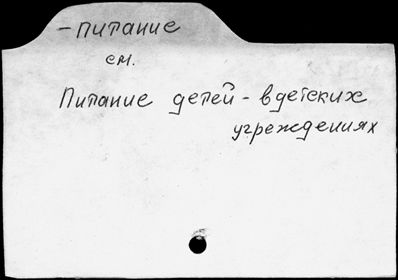 - питание
см.
Питание детей - в детских
угреждениях